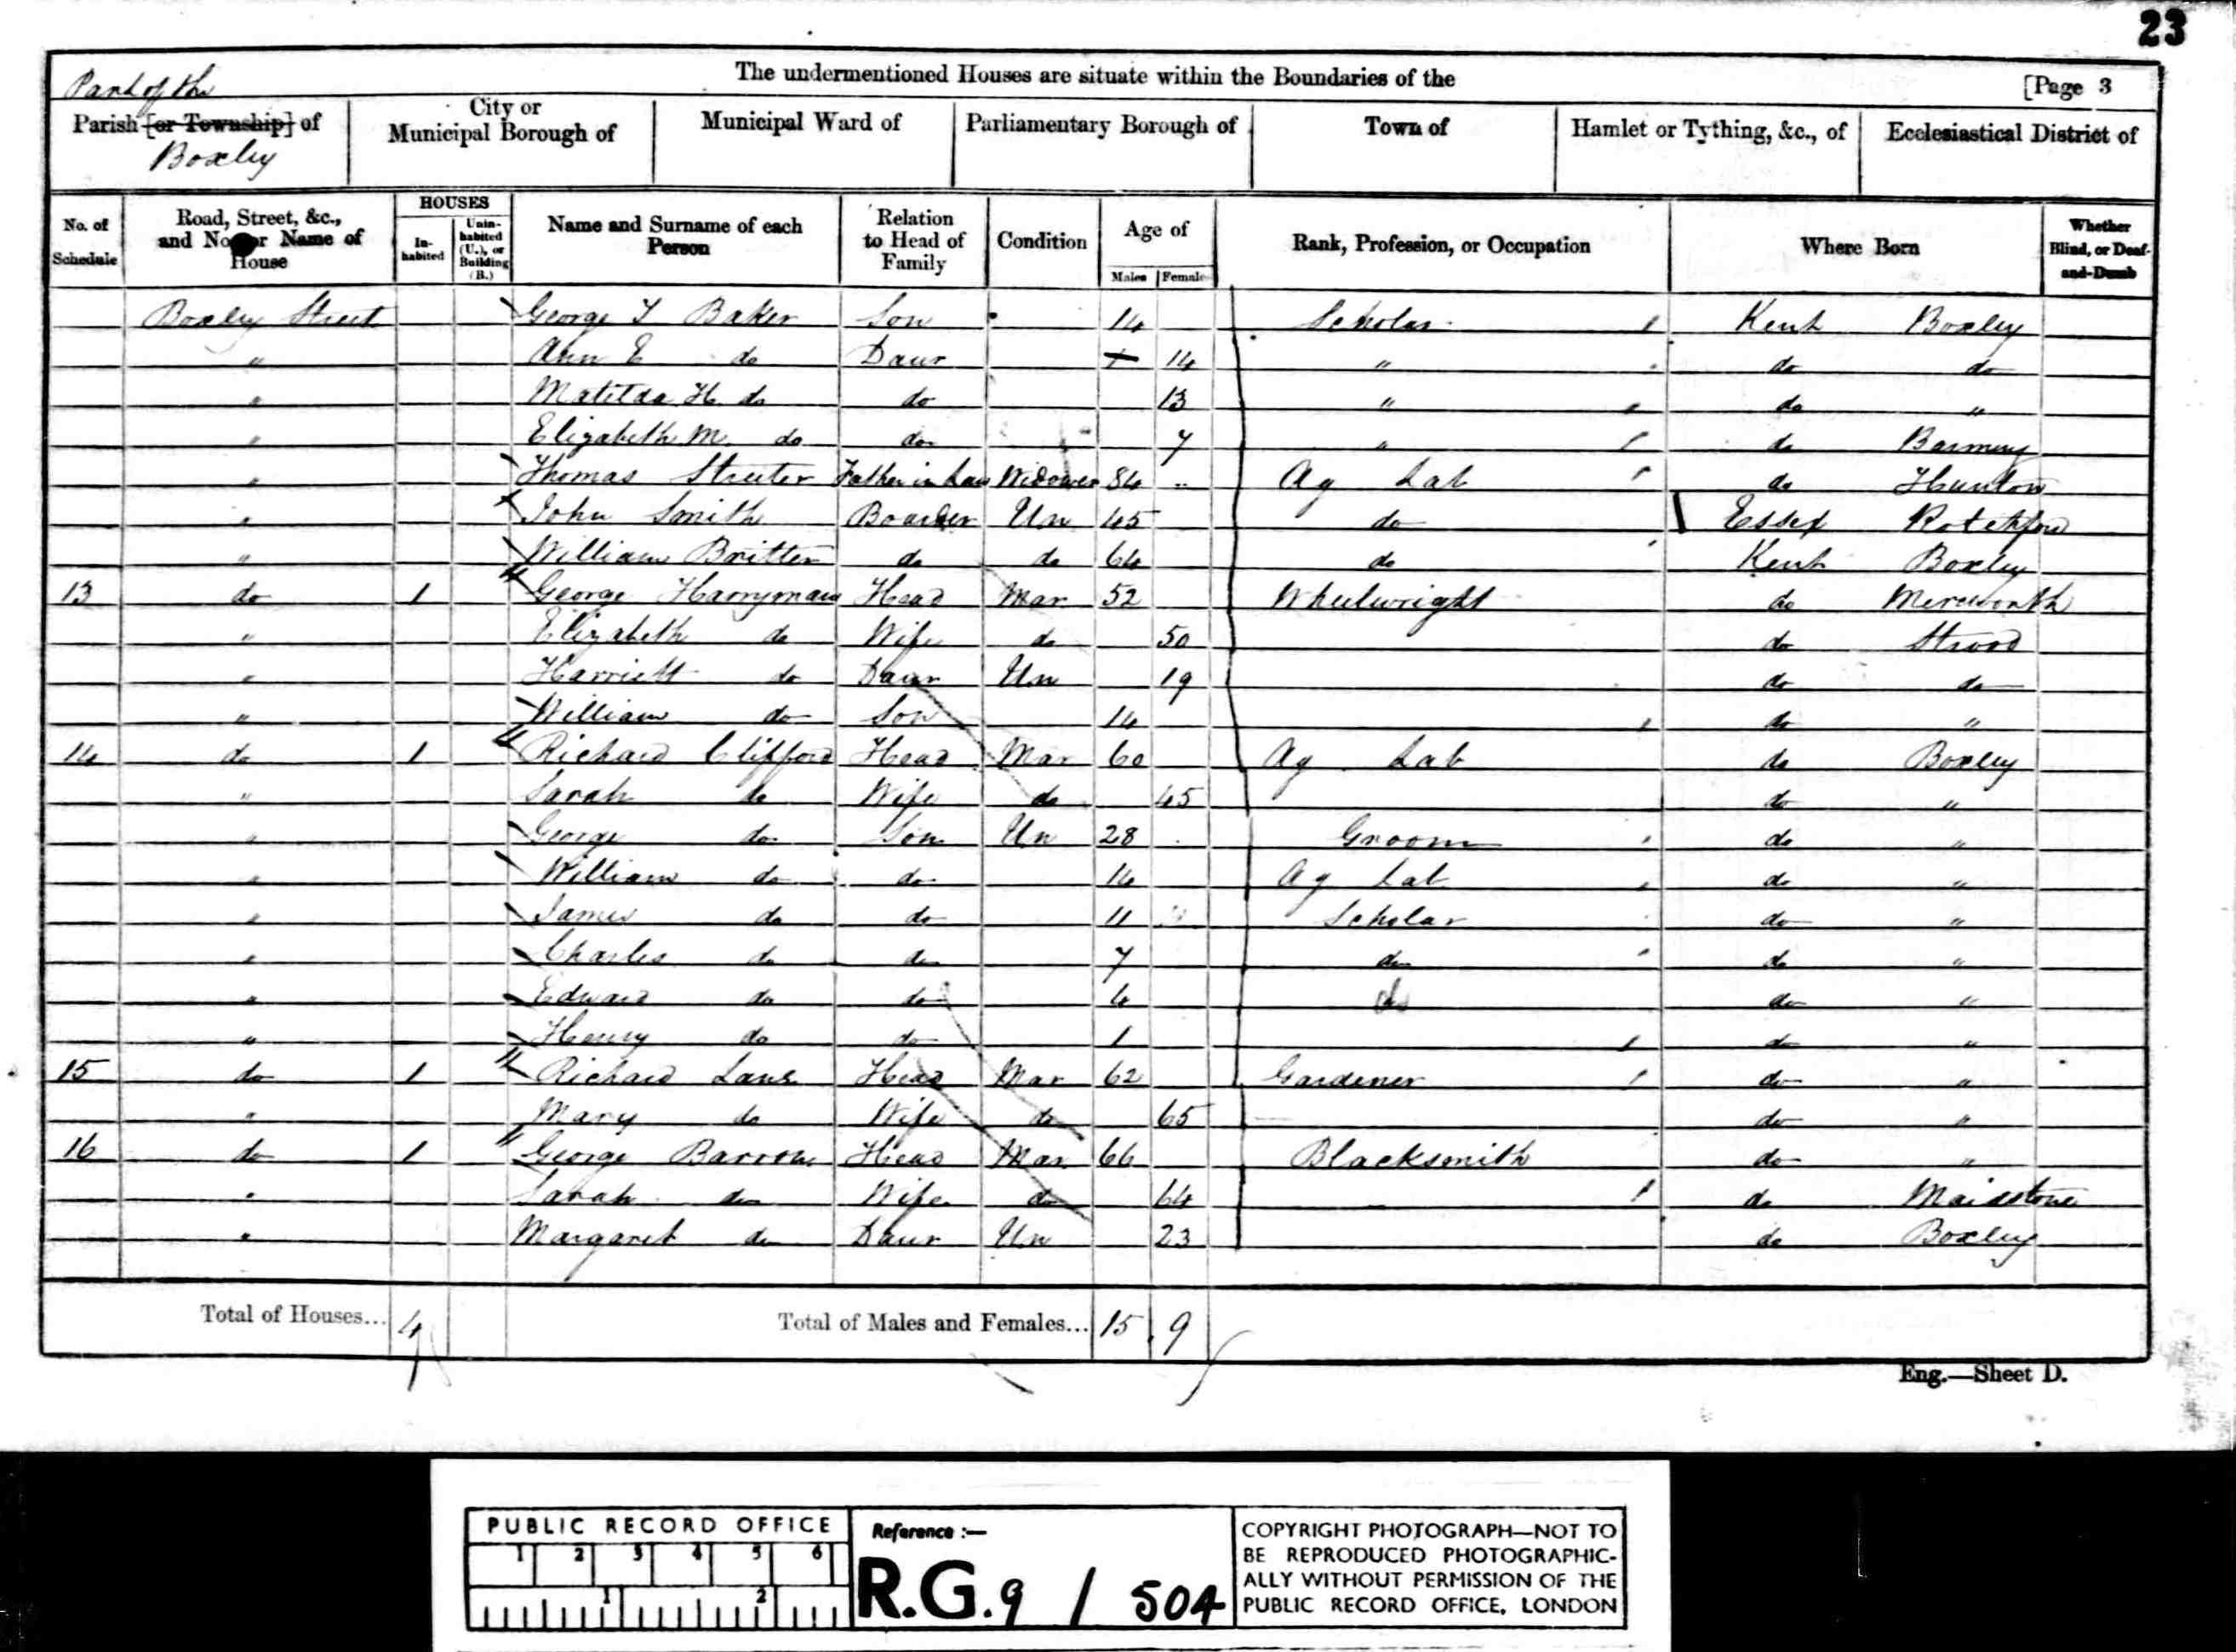 23
Part of the
The undermentioned Houses are situate within the Boundaries of the
[Page 3
Parish [or Township] of
Boxley
City or
Municipal Borough of
Municipal Ward of
Parliamentary Borough of
Town of
Hamlet or Tything, &c., of
Ecclesiastical District of
No. of Schedule
Road, Street, &c., and No. or Name of House
HOUSES
In-habited
Unin-habited (U.), or Building (B.)
Name and Surname of each Person
Relation to Head of Family
Condition
Age of
Males Females
Rank, Profession, or Occupation
Where Born
Whether Blind, or Deaf-and-Dumb
Boxley Street George T Baker Son 14 Scholar Kent Boxley
" Ann E do Daur 14 " do do
" Matilda H. do do 13 " do "
" Elizabeth M. do do 7 " do Barming
" Thomas Streeter Father in Law Widower 84 Ag Lab do Hunton
" John Smith Boarder Un 45 do Essex
" William Britter do do 64 do Kent Boxley
13 do 1 George Harryman Head Mar 52 Wheelwright do Mereworth
" Elizabeth do Wife do 50 do Strood
" Harriett do Daur Un 19 do do
" William do Son 14 do "
14 do 1 Richard Clifford Head Mar 60 Ag Lab do Boxley
" Sarah do Wife do 45 do "
" George do Son Un 28 Groom do "
" William do do 14 Ag Lab do "
" James do do 11 Scholar do "
" Charles do do 7 do do "
" Edward do do 4 do do "
" Henry do do 1 do "
15 do 1 Richard Head Mar 62 Gardener do "
" Mary do Wife do 65 do "
16 do 1 George Barrow Head Mar 66 Blacksmith do "
" Sarah do Wife do 64 do Maidstone
" Margaret do Daur Un 23 do Boxley
Total of Houses... 4
Total of Males and Females... 15 9
Eng.—Sheet D.
PUBLIC RECORD OFFICE
1 2 3 4 5 6
1 2
Reference :—
R.G. 9 / 504
COPYRIGHT PHOTOGRAPH—NOT TO
BE REPRODUCED PHOTOGRAPHIC-
ALLY WITHOUT PERMISSION OF THE
PUBLIC RECORD OFFICE, LONDON